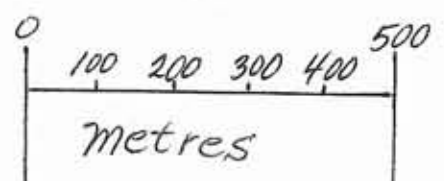 0 100 200 300 400 500
metres